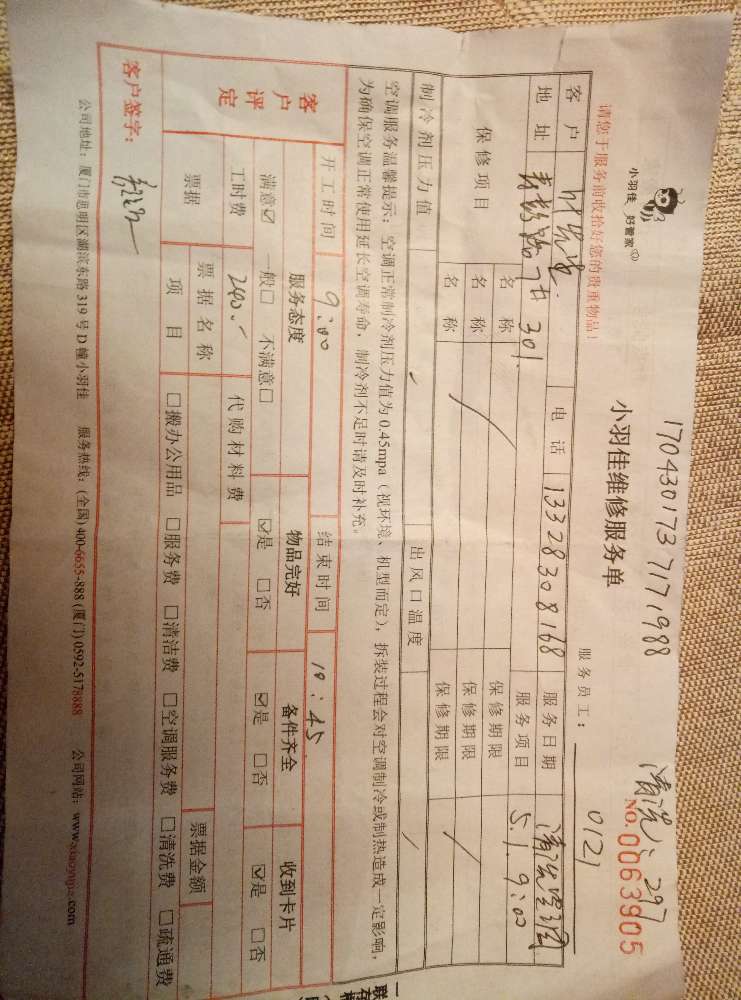 170430173 7171988
清洗:297
小羽佳 好管家
小羽佳维修服务单
NO.0063905
请您于服务前收拾好您的贵重物品!
服务员工:0121
客户 电话 13328308168 服务日期 清洗空调
地址 7# 301 服务项目 5.1 9:00
保修项目 名称 保修期限
名称 保修期限
名称 保修期限
制冷剂压力值 出风口温度
空调服务温馨提示:空调正常制冷剂压力值为0.45mpa(视环境、机型而定),拆装过程会对空调制冷或制热造成一定影响,
为确保空调正常使用延长空调寿命,制冷剂不足时请及时补充。
客户评定
开工时间 9:00 结束时间 10:45
服务态度 物品完好 备件齐全 收到卡片
满意☑ 一般□ 不满意□ ☑是 □否 ☑是 □否 ☑是 □否
工时费 240.- 代购材料费
票据 票据名称 票据金额
项目 □搬办公用品 □服务费 □清洁费 □空调服务费 □清洗费 □疏通费
客户签字:
公司地址:厦门市思明区湖滨东路319号D幢小羽佳 服务热线:(全国)400-6655-888 (厦门)0592-5178888 公司网站:www.xiaoyujia.com